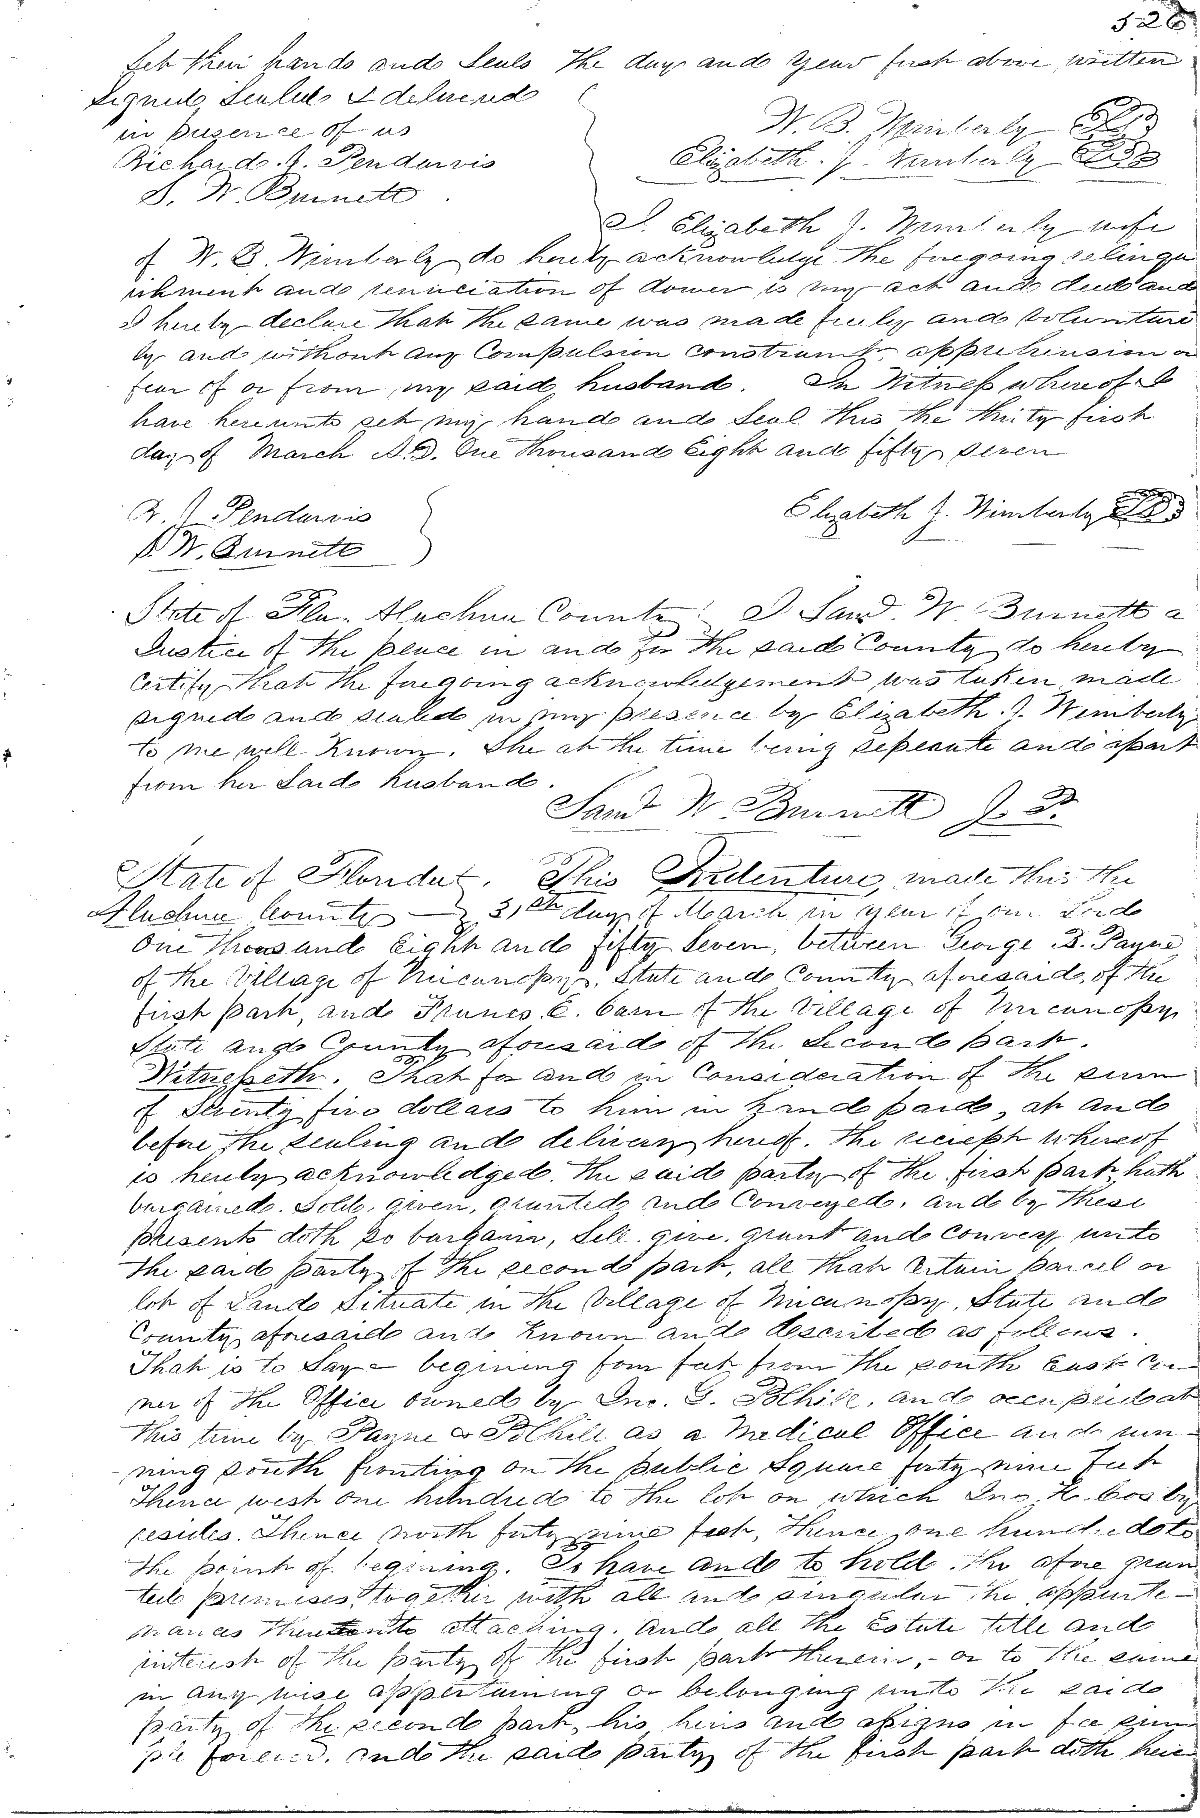 526
set their hands and seals the day and year first above written
Signed, Sealed & delivered
in presence of us
Richard J. Pendarvis
S. W. Burnett
W. B. Wimberly
Elizabeth. J. Wimberly
I. Elizabeth J. Wimberly wife
of W. B. Wimberly do hereby acknowledge the foregoing relinqu
ishment and renunciation of dower is my act and deed and
I hereby declare that the same was made freely and voluntari
ly and without any Compulsion constraint, apprehension or
fear of or from my said husband. In Witness whereof I
have hereunto set my hand and seal this the thirty first
day of March A.D. One thousand Eight and fifty seven
R. J. Pendarvis
S. W. Burnett
Elizabeth J. Wimberly
State of Fla. Alachua County I Saml. W. Burnett a
Justice of the peace in and for the said County do hereby
Certify that the foregoing acknowledgement was taken, made
signed and sealed in my presence by Elizabeth. J. Wimberly
to me well Known. She at the time being seperate and apart
from her Said husband.
Saml W. Burnett J. P.
State of Florida. This Indenture, made this the
Alachua County 31st day of March in year of our Lord
One thousand Eight and fifty Seven, between George B. Payne
of the Village of Micanopy, State and County aforesaid, of the
first part, and Francs. E. Carn of the Village of Micanopy
State and County aforesaid of the Second part.
Witnesseth. That for and in Consideration of the sum
of Seventy five dollars to him in hand paid, at and
before the sealing and delivery hereof. the reciept whereof
is hereby acknowledged. the said party of the first part hath
bargained. Sold. given, granted and Conveyed, and by these
presents doth so bargain, Sell. give. grant and convey unto
the said party of the second part, all that certain parcel or
lot of Land Situate in the Village of Micanopy, State and
County aforesaid and Known and described as follows.
That is to Say - begining four feet from the south East Cor
ner of the Office owned by Jno. G. Polhill, and occupied at
this time by Payne & Polhill as a Medical Office and run-
ning south fronting on the public Square forty nine Feet
Thence west one hundred to the lot on which Jno. H. Cosby
resides. Thence north forty nine feet, thence one hundred to
the point of begining. To have and to hold. the afore gran
ted premises, together with all and singular the appurte-
nances thereunto attaching. And all the Estate title and
interest of the party of the first part therein, - or to the same
in any wise appertaining or belonging unto the said
party of the second part, his, heirs and assigns in fee sim
ple forever. and the said party of the first part doth here